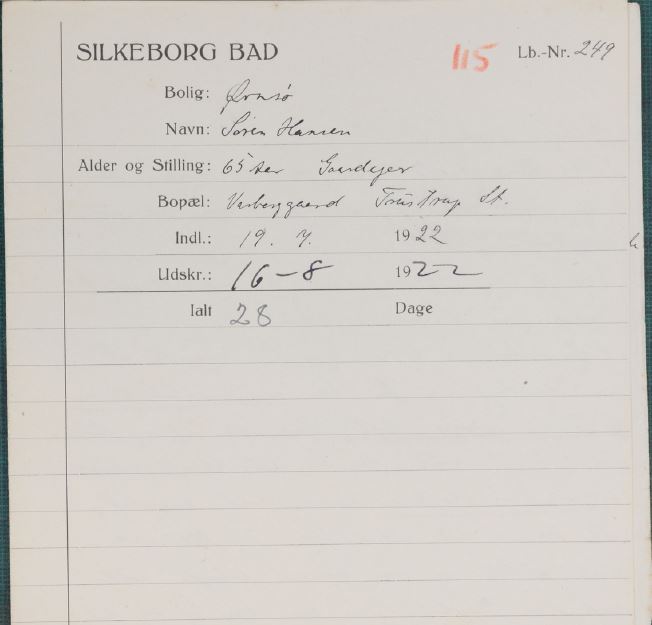 SILKEBORG BAD 115 Lb.-Nr. 249
Bolig: Ørnsø
Navn: Søren Hansen
Alder og Stilling: 65 Aar Gaardejer
Bopæl: Varberggaard Trustrup St.
Indl.: 19. 7. 1922
Udskr.: 16-8 1922
Ialt 28 Dage